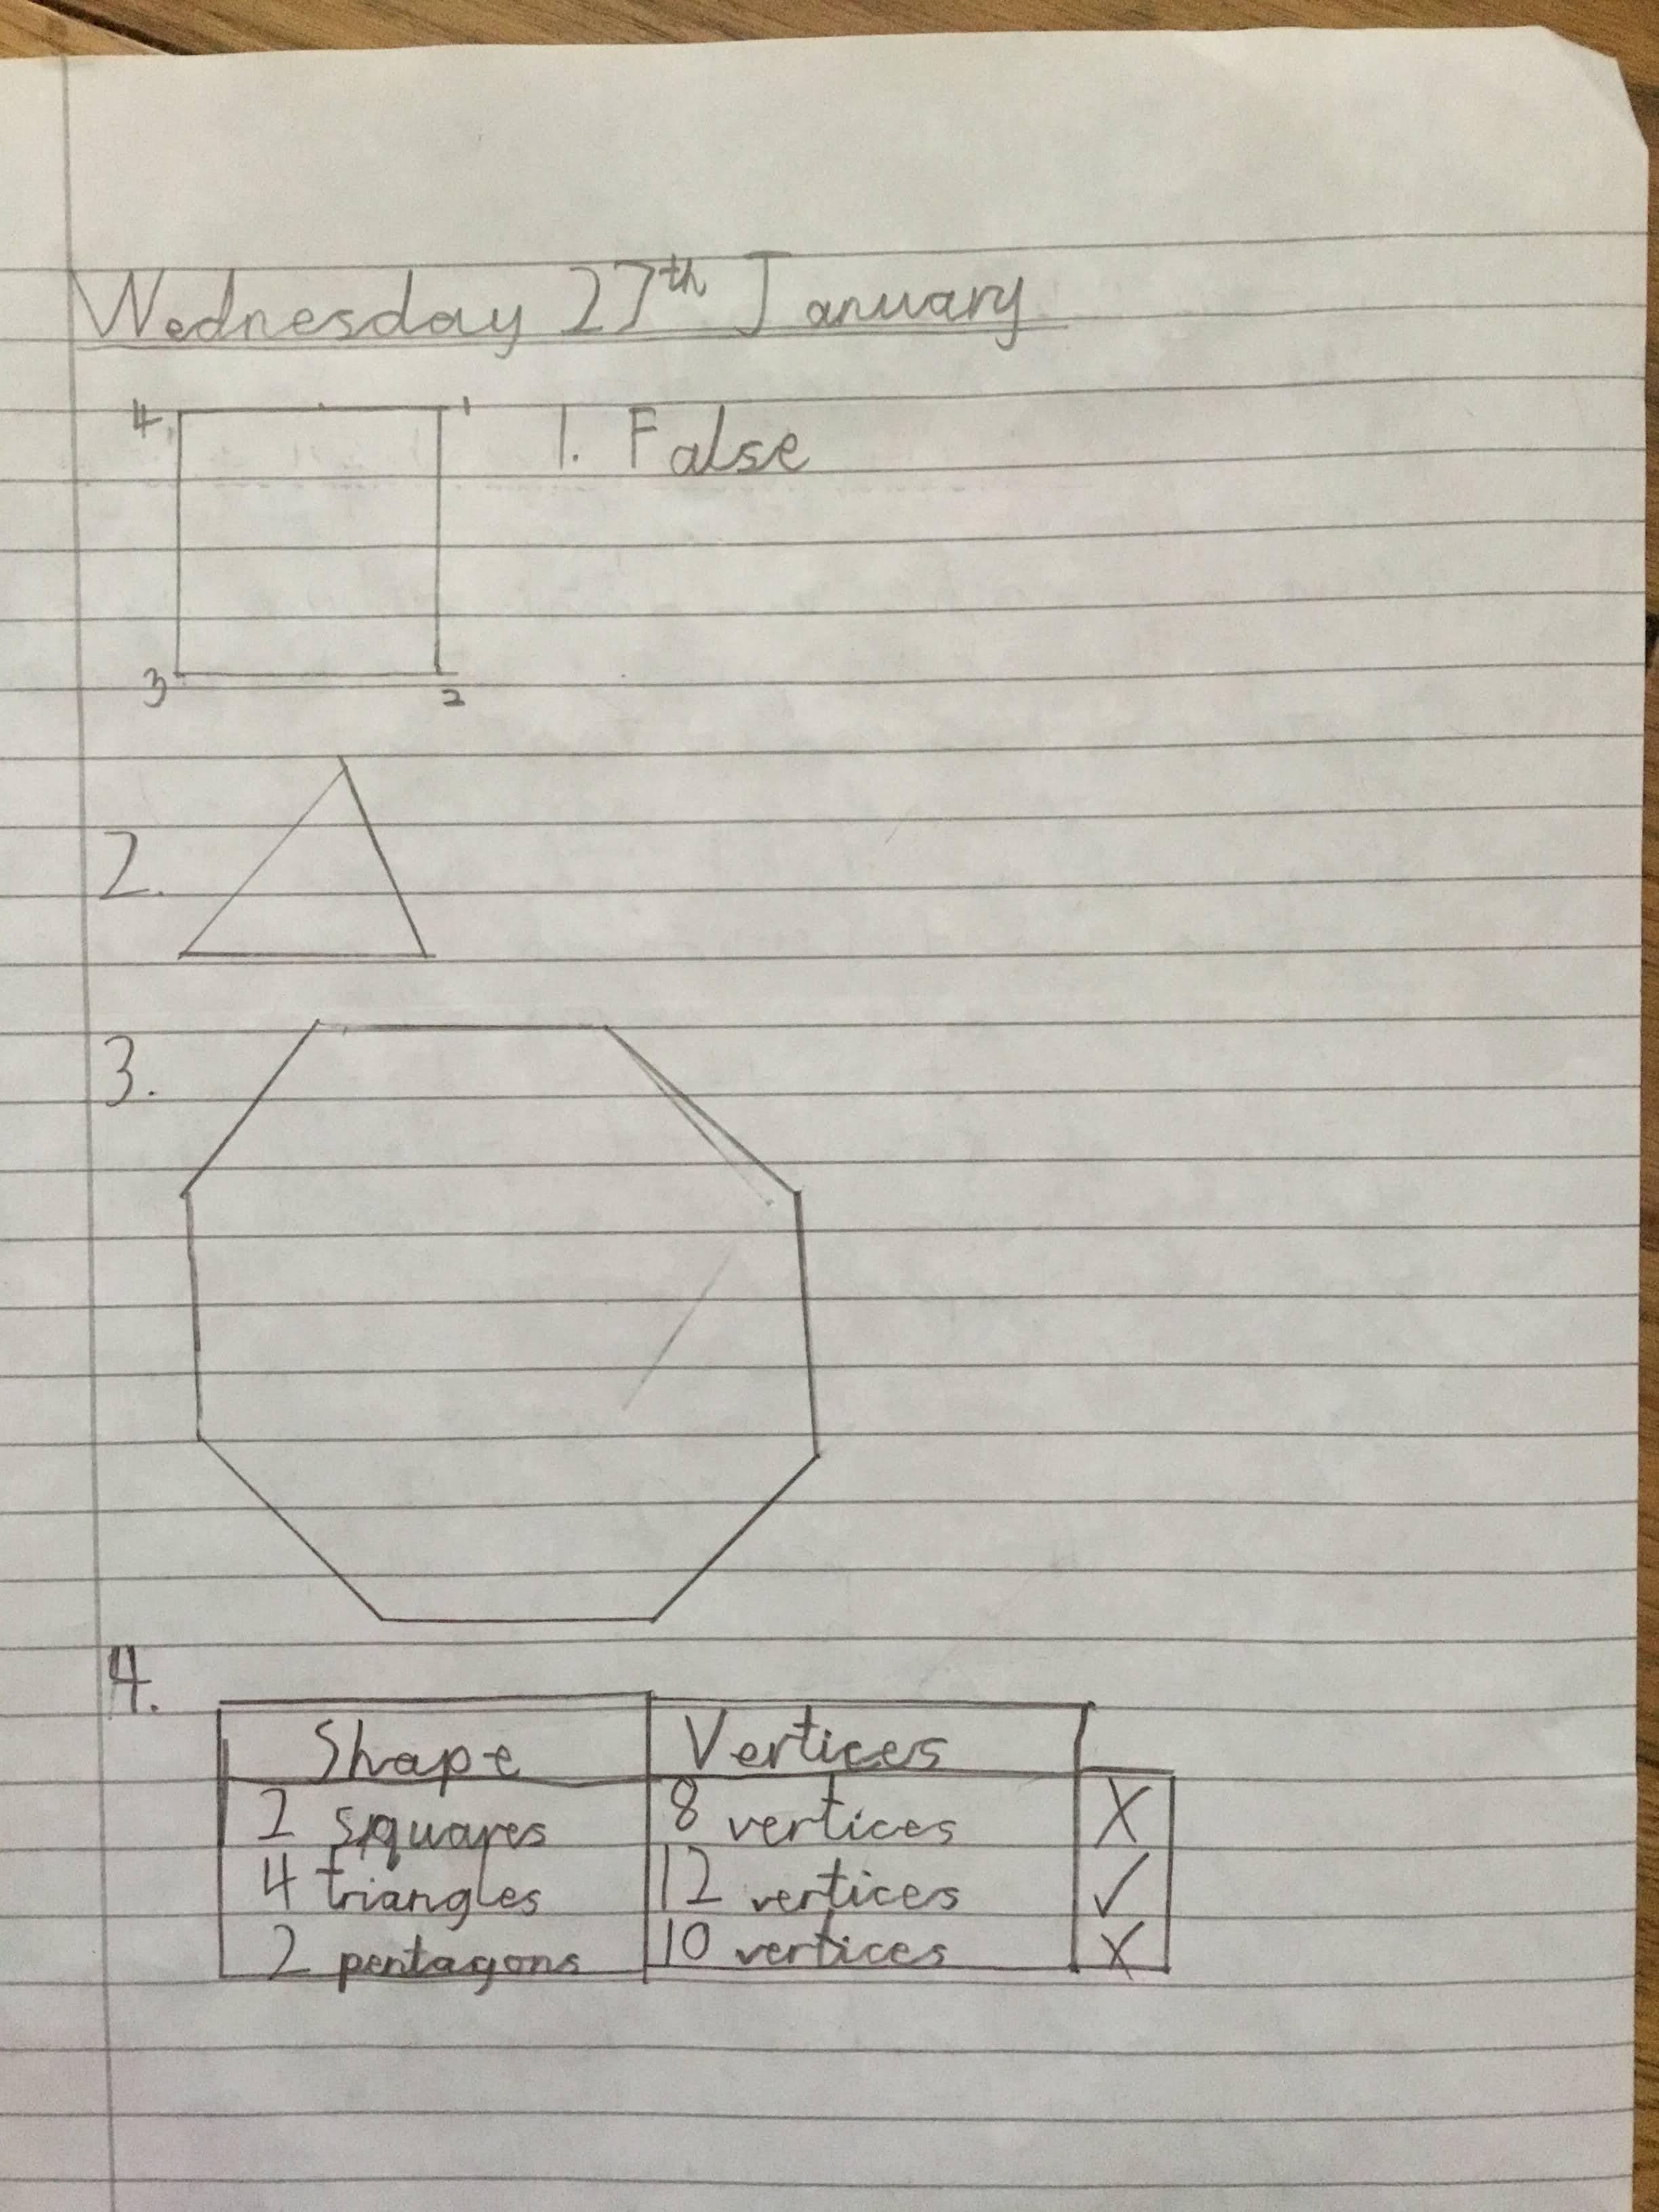 Wednesday 27th January
4 1
1. False
3 2
2.
3.
4.
Shape Vertices
2 squares 8 vertices X
4 triangles 12 vertices ✓
2 pentagons 10 vertices X